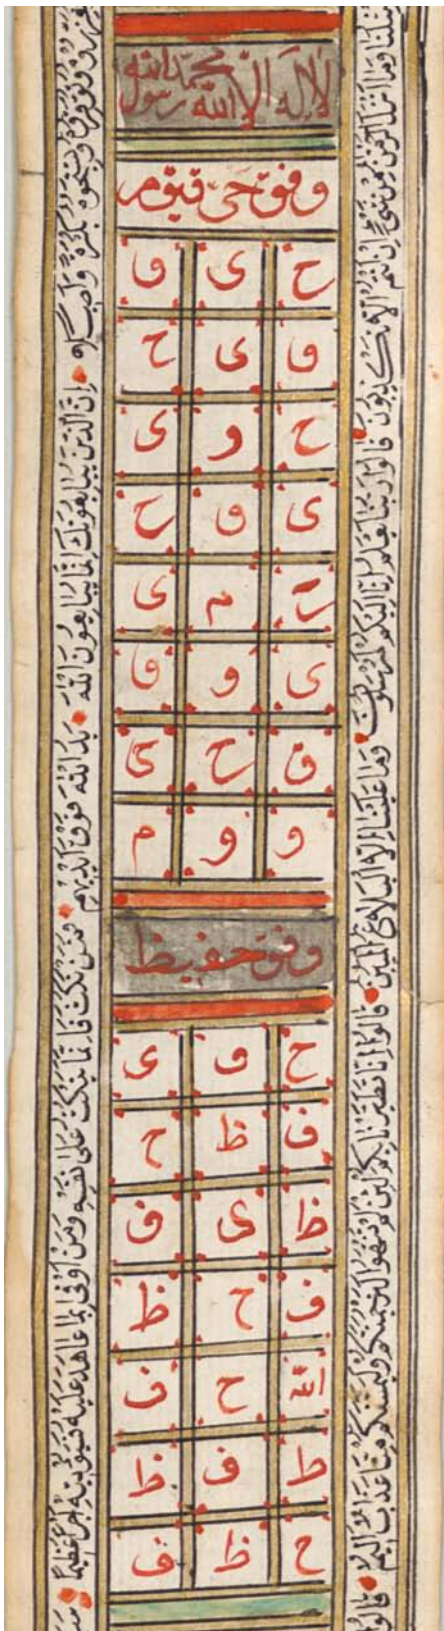 لا اله الا الله محمد رسول الله
وفق حى قيوم
ح ى ق
ق ى ح
ح و ى
ى ق ح
ح م ى
ى و ق
ق ح ى
و و م
وفق حفيظ
ح ف ى
ف ظ ح
ظ ى ف
ف ح ظ
الله ح ف
ط ف ظ
ح ظ ف
مثلنا وما انزل الرحمن من شئ ان انتم الا تكذبون قالوا ربنا يعلم انا اليكم لمرسلون وما علينا الا البلاغ المبين قالوا انا تطيرنا بكم لئن لم تنتهوا لنرجمنكم وليمسنكم منا عذاب اليم قالوا
وتوقروه وتسبحوه بكرة واصيلا ان الذين يبايعونك انما يبايعون الله يد الله فوق ايديهم فمن نكث فانما ينكث على نفسه ومن اوفى بما عاهد عليه فسيؤتيه اجرا عظيما